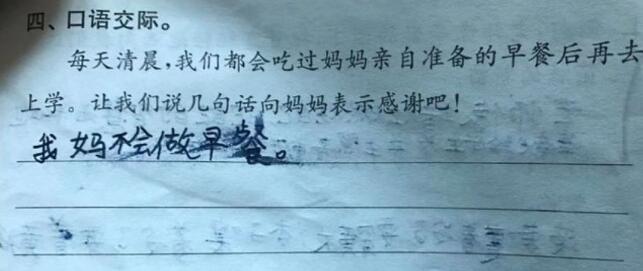 四、口语交际。
每天清晨,我们都会吃过妈妈亲自准备的早餐后再去
上学。让我们说几句话向妈妈表示感谢吧!
我妈不会做早餐。